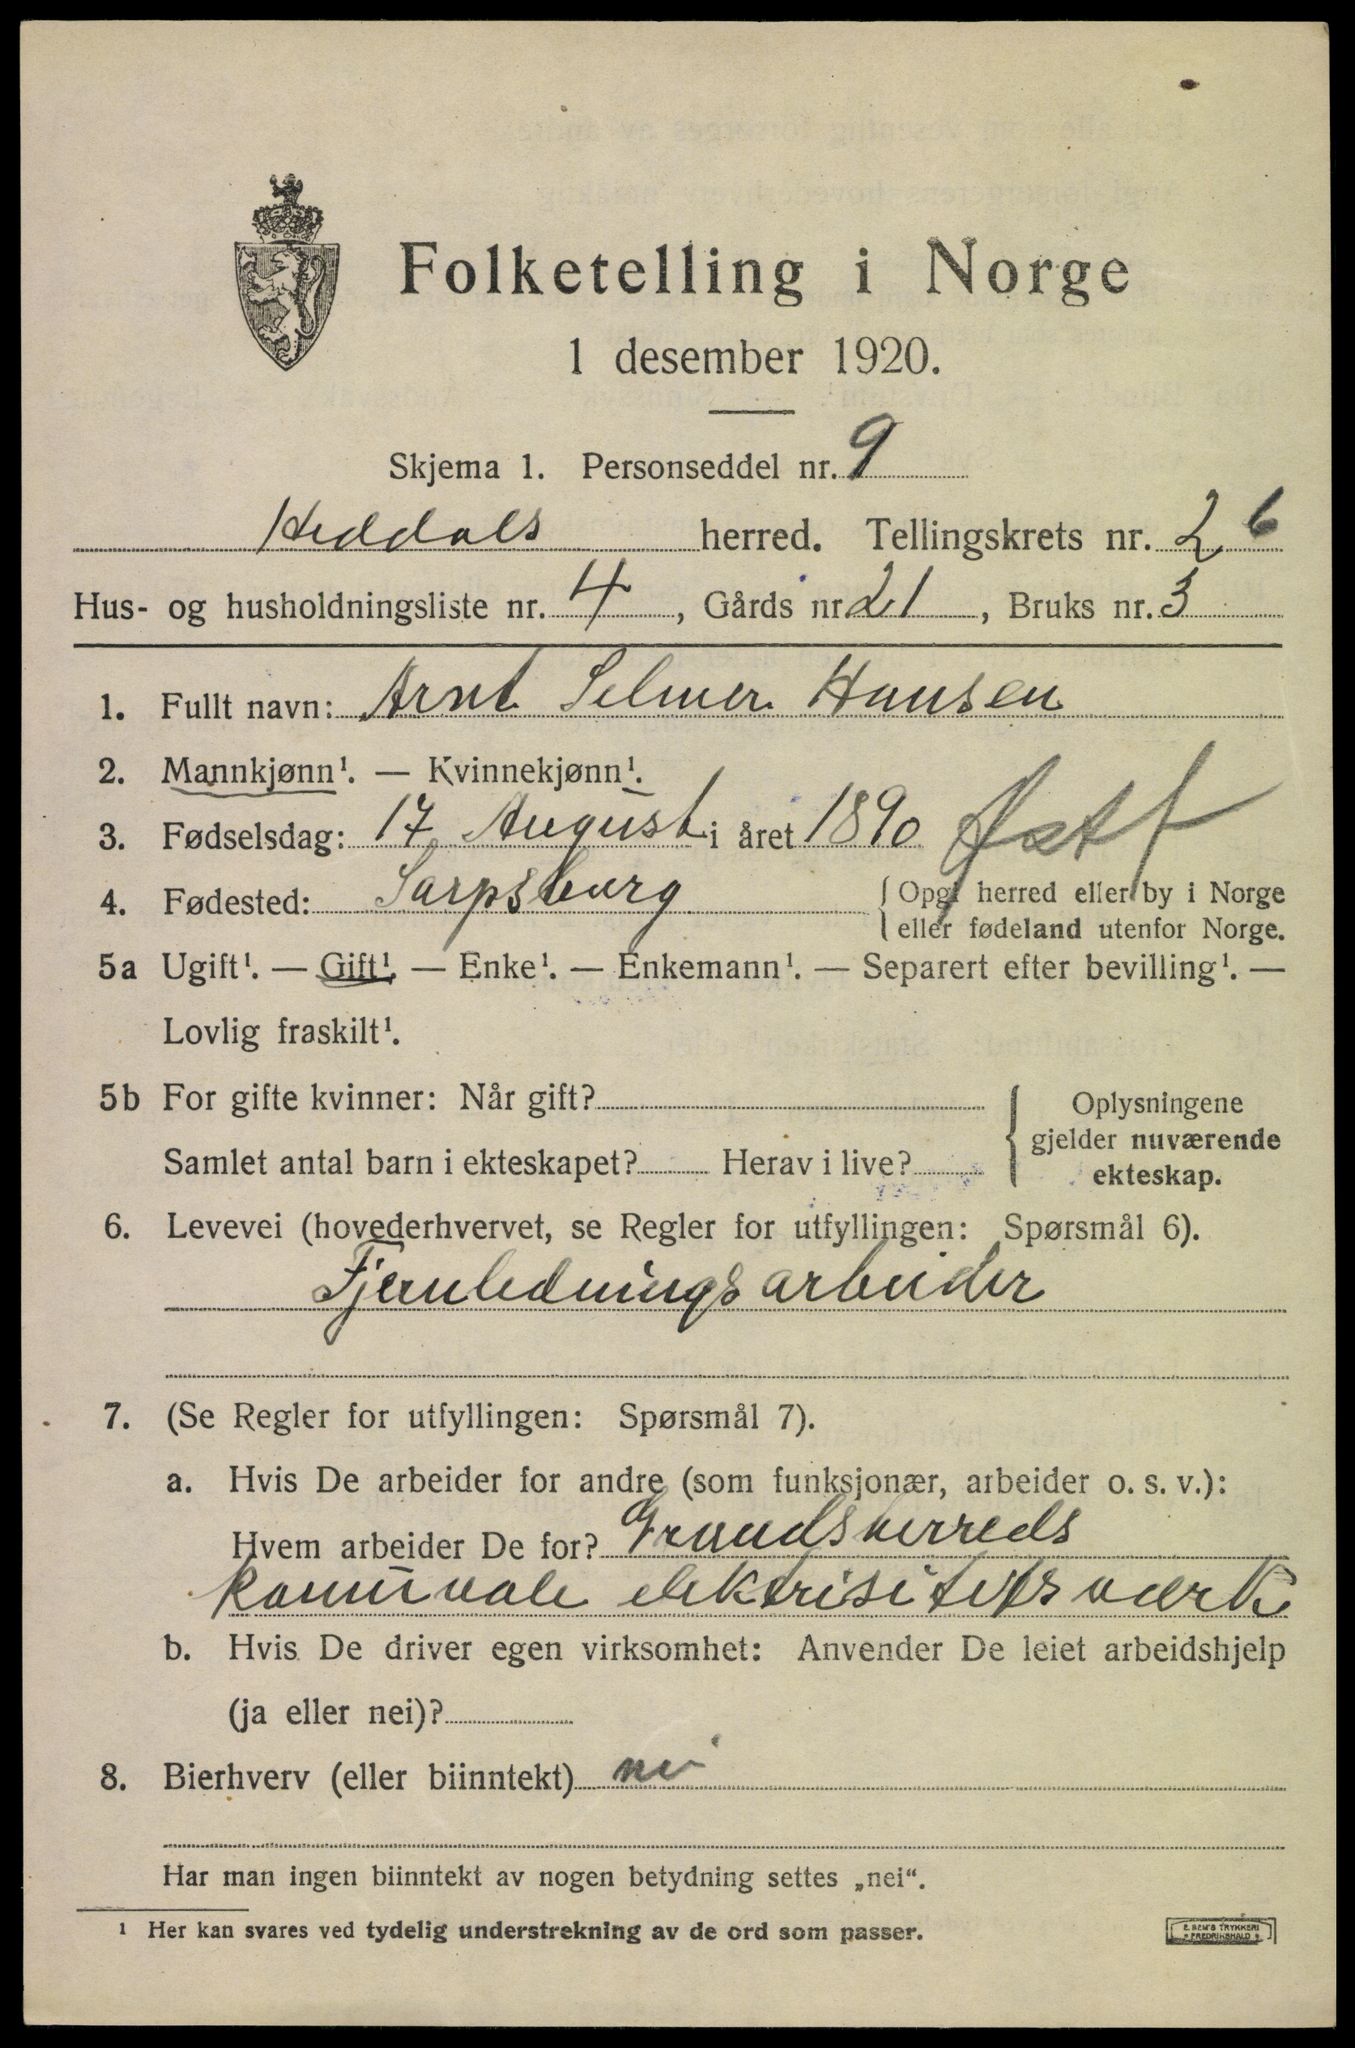 Folketelling i Norge
1 desember 1920.
Skjema 1. Personseddel nr. 9
Heddals herred. Tellingskrets nr. 2 6
Hus- og husholdningsliste nr. 4, Gårds nr. 21, Bruks nr. 3
1. Fullt navn: Arnt Selmer Hansen
2. Mannkjønn¹. — Kvinnekjønn¹.
3. Fødselsdag: 17 August i året 1890 Østf
4. Fødested: Sarpsborg { Opgi herred eller by i Norge
eller fødeland utenfor Norge.
5a Ugift¹. — Gift¹. — Enke¹. — Enkemann¹. — Separert efter bevilling¹. —
Lovlig fraskilt¹.
5b For gifte kvinner: Når gift? { Oplysningene
gjelder nuværende
ekteskap.
Samlet antal barn i ekteskapet? Herav i live?
6. Levevei (hovederhvervet, se Regler for utfyllingen: Spørsmål 6).
Fjernledningsarbeider
7. (Se Regler for utfyllingen: Spørsmål 7).
a. Hvis De arbeider for andre (som funksjonær, arbeider o. s. v.):
Hvem arbeider De for? Grandsherreds
komunale elektrisitetsværk
b. Hvis De driver egen virksomhet: Anvender De leiet arbeidshjelp
(ja eller nei)?
8. Bierhverv (eller biinntekt) nei
Har man ingen biinntekt av nogen betydning settes „nei“.
¹ Her kan svares ved tydelig understrekning av de ord som passer.
E. SEM'S TRYKKERI
FREDRIKSHALD